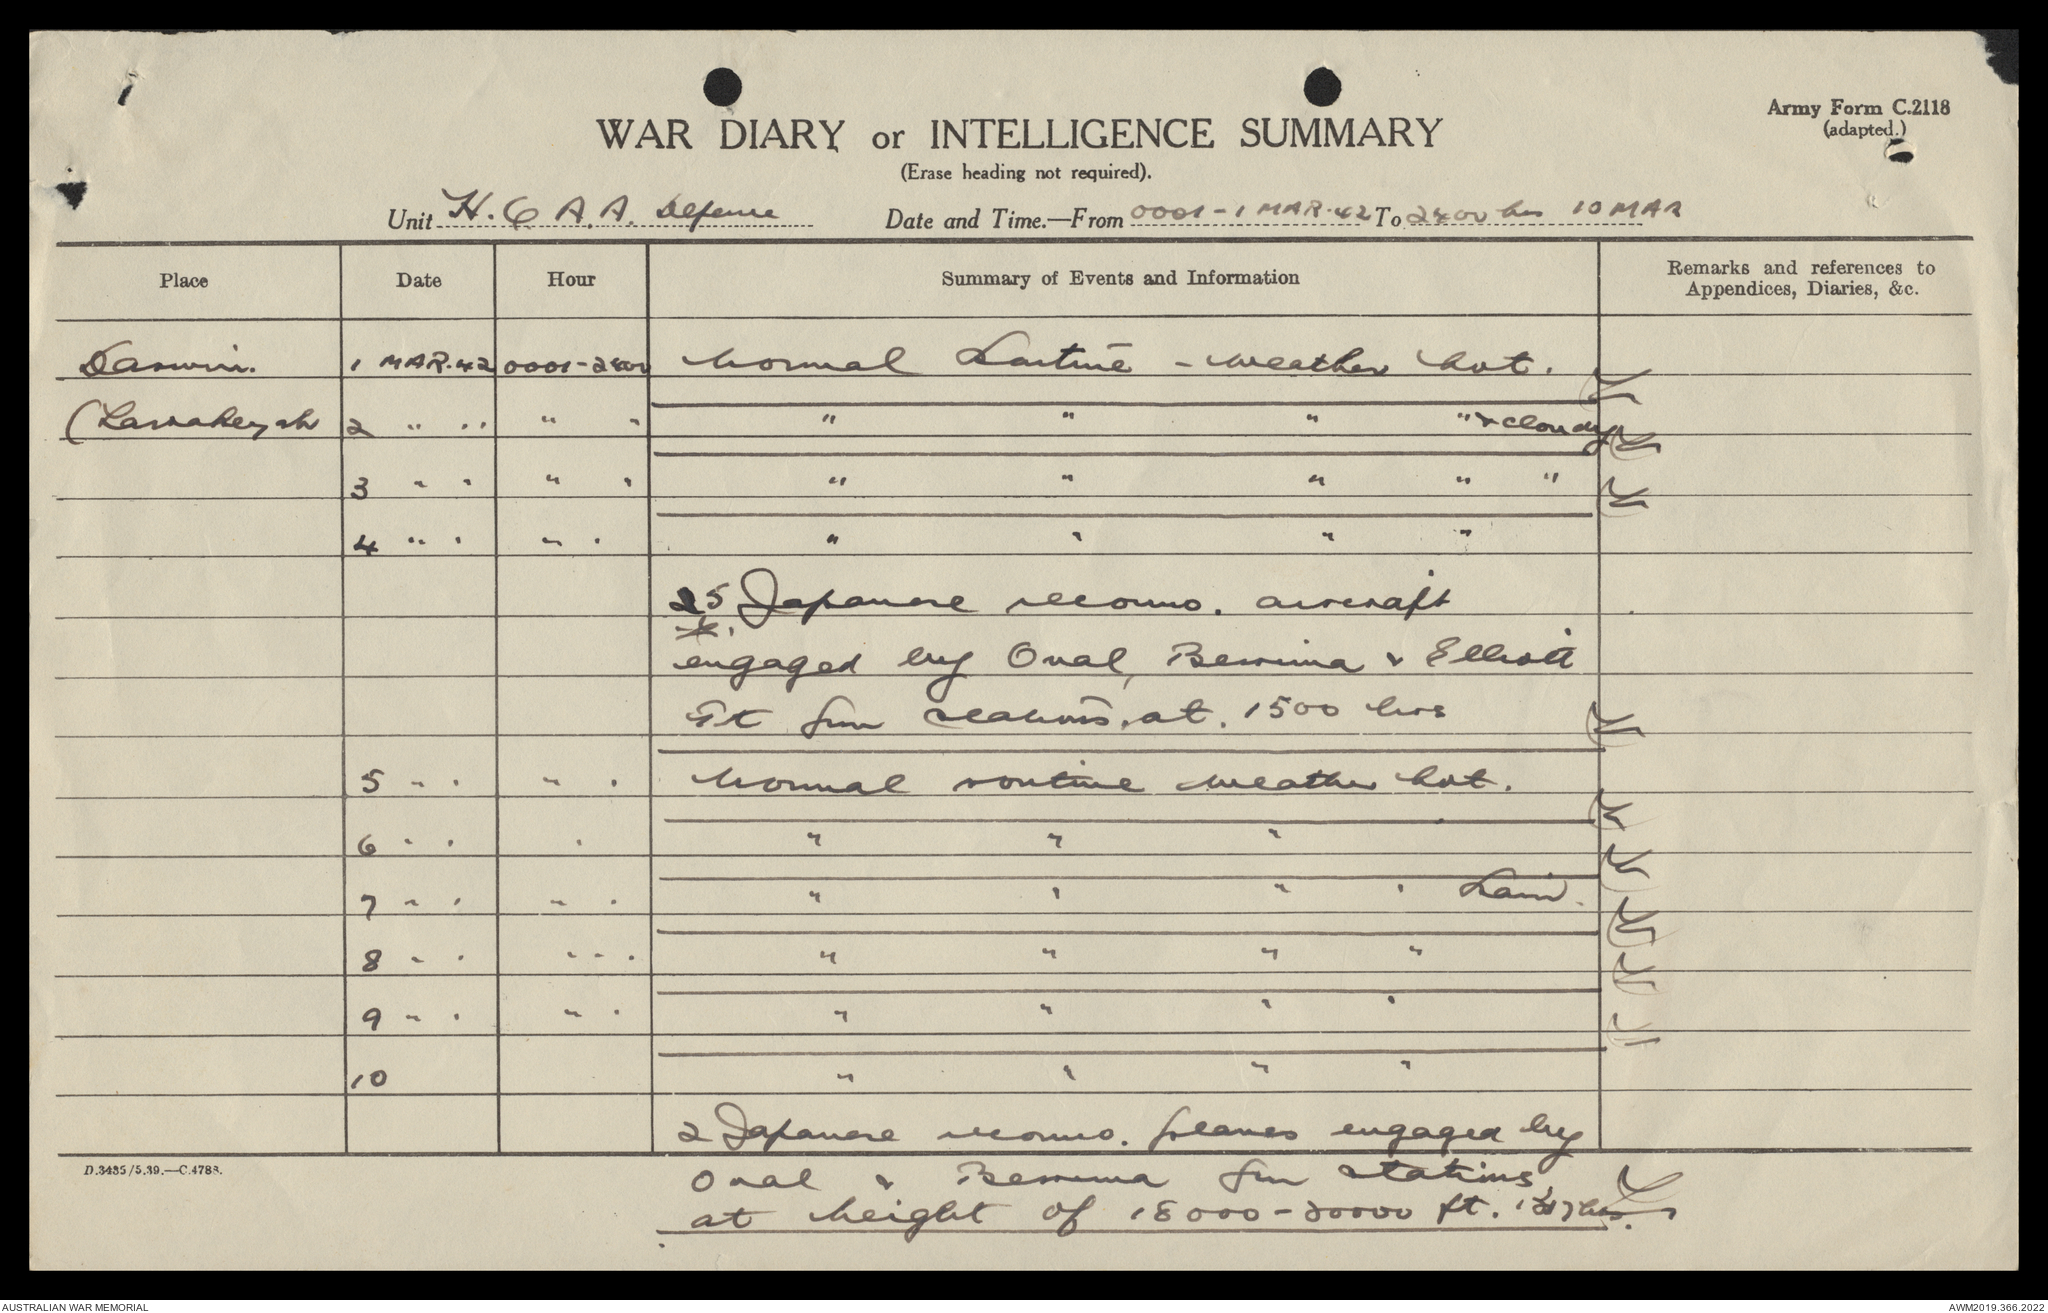 Army Form C.2118
(adapted.)
WAR DIARY or INTELLIGENCE SUMMARY
(Erase heading not required).
Unit H.Q A.A. Defence Date and Time.—From 0001 - 1 MAR.42 To 2400 hrs 10 MAR
Place Date Hour Summary of Events and Information Remarks and references to
Appendices, Diaries, &c.
Darwin. 1 MAR.42 0001-2400 Normal Routine - Weather hot.
(Larrakeyah 2 " " " " " " " " & cloudy
3 " " " " " " " " "
4 " " " " " " " "
25 Japanese reconno. aircraft
engaged by Oval, Berrima & Elliott
Pt Gun stations. at. 1500 hrs
5 " " " " Normal routine weather hot.
6 " " " " " "
7 " " " " " " " " Rain.
8 " " " " " " " " "
9 " " " " " " " "
10 " " " "
2 Japanese reconno. planes engaged by
Oval & Berrima Gun stations
at height of 18000-20000 ft.
D.3435/5.39.—C.4788.
AUSTRALIAN WAR MEMORIAL AWM2019.366.2022